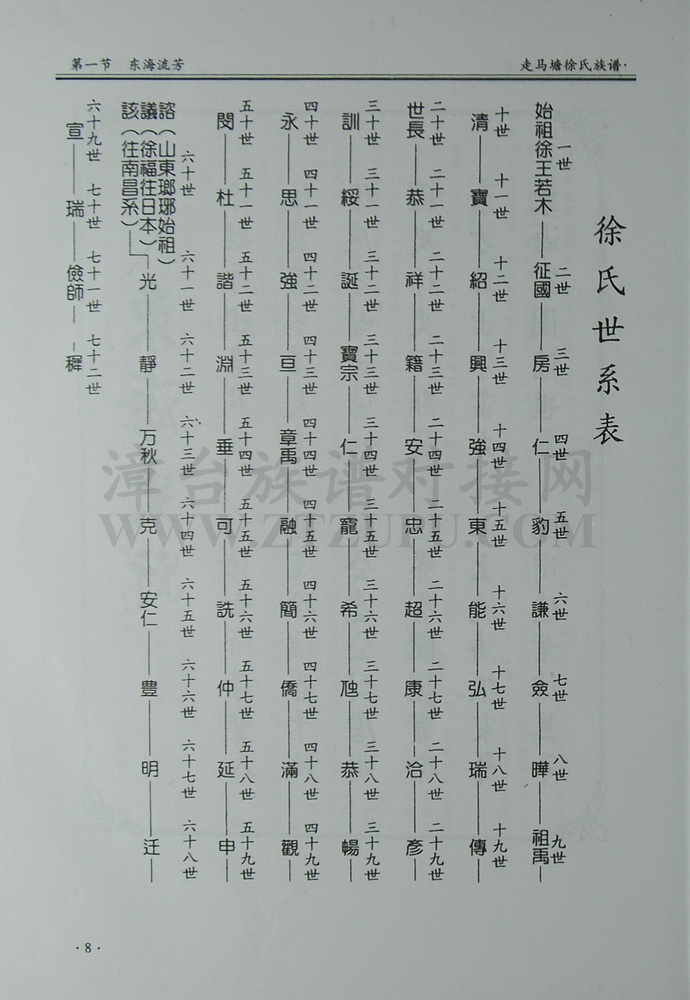 第一节　东海流芳
走马塘徐氏族谱·
徐氏世系表
一世 二世 三世 四世 五世 六世 七世 八世 九世
始祖徐王若木——征國——房——仁——豹——謙——僉——曄——祖禹—
十世 十一世 十二世 十三世 十四世 十五世 十六世 十七世 十八世 十九世
清——寶——紹——興——強——東——能——弘——瑞——傳—
二十世 二十一世 二十二世 二十三世 二十四世 二十五世 二十六世 二十七世 二十八世 二十九世
世長——恭——祥——籍——安——忠——超——康——洽——彥—
三十世 三十一世 三十二世 三十三世 三十四世 三十五世 三十六世 三十七世 三十八世 三十九世
訓——綏——誕——寶宗——仁——寵——希————恭——暢—
四十世 四十一世 四十二世 四十三世 四十四世 四十五世 四十六世 四十七世 四十八世 四十九世
永——思——強——亘——章禹——融——簡——僑——滿——觀—
五十世 五十一世 五十二世 五十三世 五十四世 五十五世 五十六世 五十七世 五十八世 五十九世
閔——杜——諧——淵——垂——可——詵——仲——延——申—
六十世 六十一世 六十二世 六十三世 六十四世 六十五世 六十六世 六十七世 六十八世
諮（山東瑯琊始祖）
議（徐福往日本）
該（往南昌系）——光——靜——万秋——克——安仁——豊——明——迁—
六十九世 七十世 七十一世 七十二世
宣——瑞——儉師——穉
·8·
漳台族谱对接网
WWW.ZTZUPU.COM